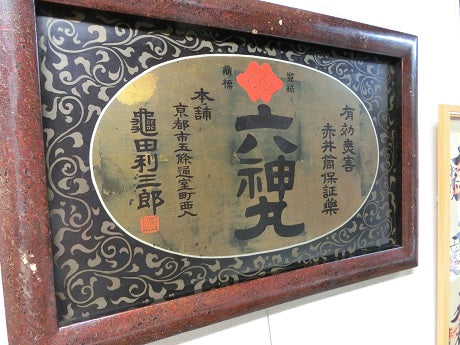 有効無害
赤井筒保証薬
登録
商標
六神丸
本舗
京都市五條通室町西入
龜田利三郎